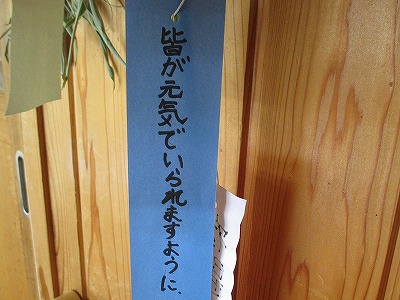 皆が元気でいられますように、